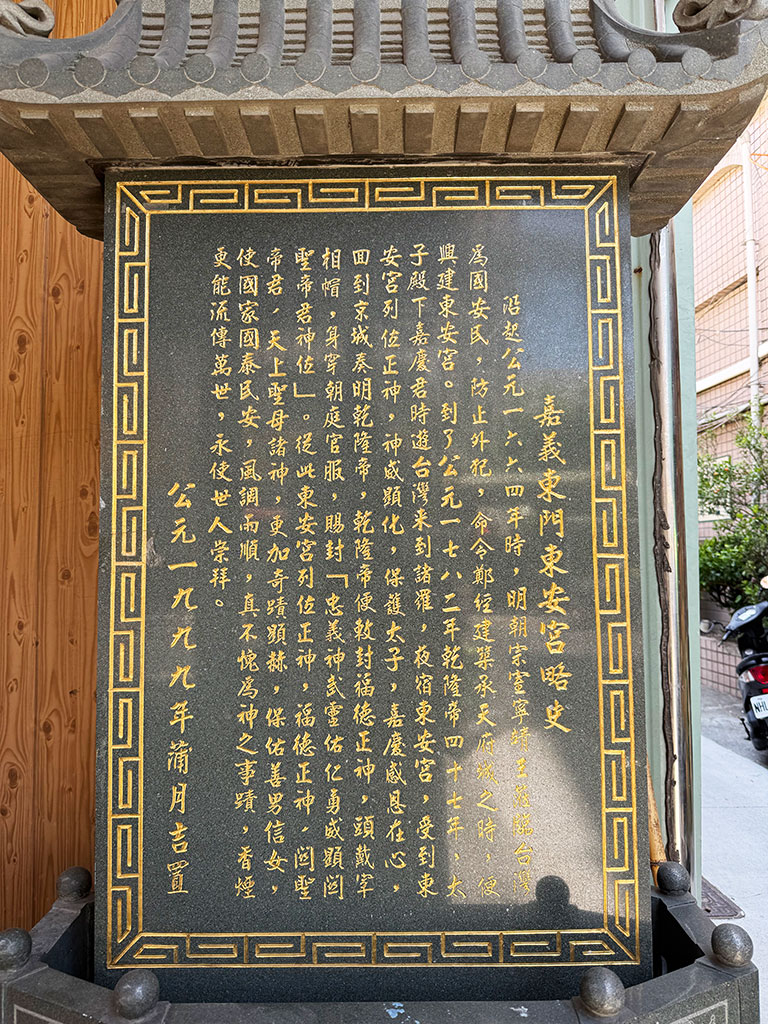 嘉義東門東安宮略史
沿起公元一六六四年時，明朝宗室寧靖王蒞臨台灣
為國安民，防止外犯，命令鄭經建築承天府城之時，便
興建東安宮。到了公元一七八二年乾隆帝四十七年，太
子殿下嘉慶君時遊台灣來到諸羅，夜宿東安宮，受到東
安宮列位正神，神威顯化，保護太子，嘉慶感恩在心，
回到京城奏明乾隆帝，乾隆帝便敕封福德正神，頭戴宰
相帽，身穿朝庭官服，賜封「忠義神武靈佑仁勇威顯関
聖帝君神位」。從此東安宮列位正神，福德正神，関聖
帝君，天上聖母諸神，更加奇蹟顯赫，保佑善男信女，
使國家國泰民安，風調雨順，真不愧為神之事蹟，香煙
更能流傳萬世，永使世人崇拜。
公元一九九九年蒲月吉置
NHL